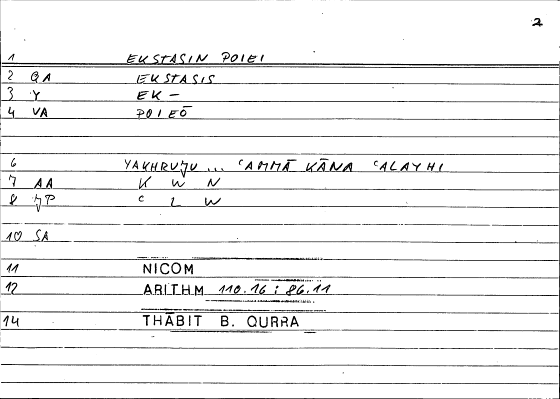 2
1 EKSTASIN POIEI
2 QA EKSTASIS
3 Y EK –
4 VA POIEŌ
6 YAKHRUǦU ... ʿAMMĀ KĀNA ʿALAYHI
7 AA K W N
8 ʿ L W
10 SA
11 NICOM
12 ARITHM 110.16 : 86.11
14 THĀBIT B. QURRA